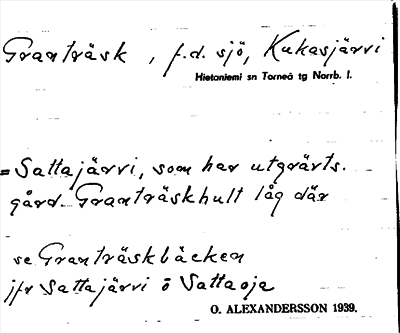 Granträsk, f.d. sjö, Kukasjärvi
Hietaniemi sn Torneå tg Norrb. l.
= Sattajärvi, som har utgrävts.
gård Granträskhult låg där
se Granträskbäcken
jfr Sattajärvi o Sattaoja
O. ALEXANDERSSON 1939.